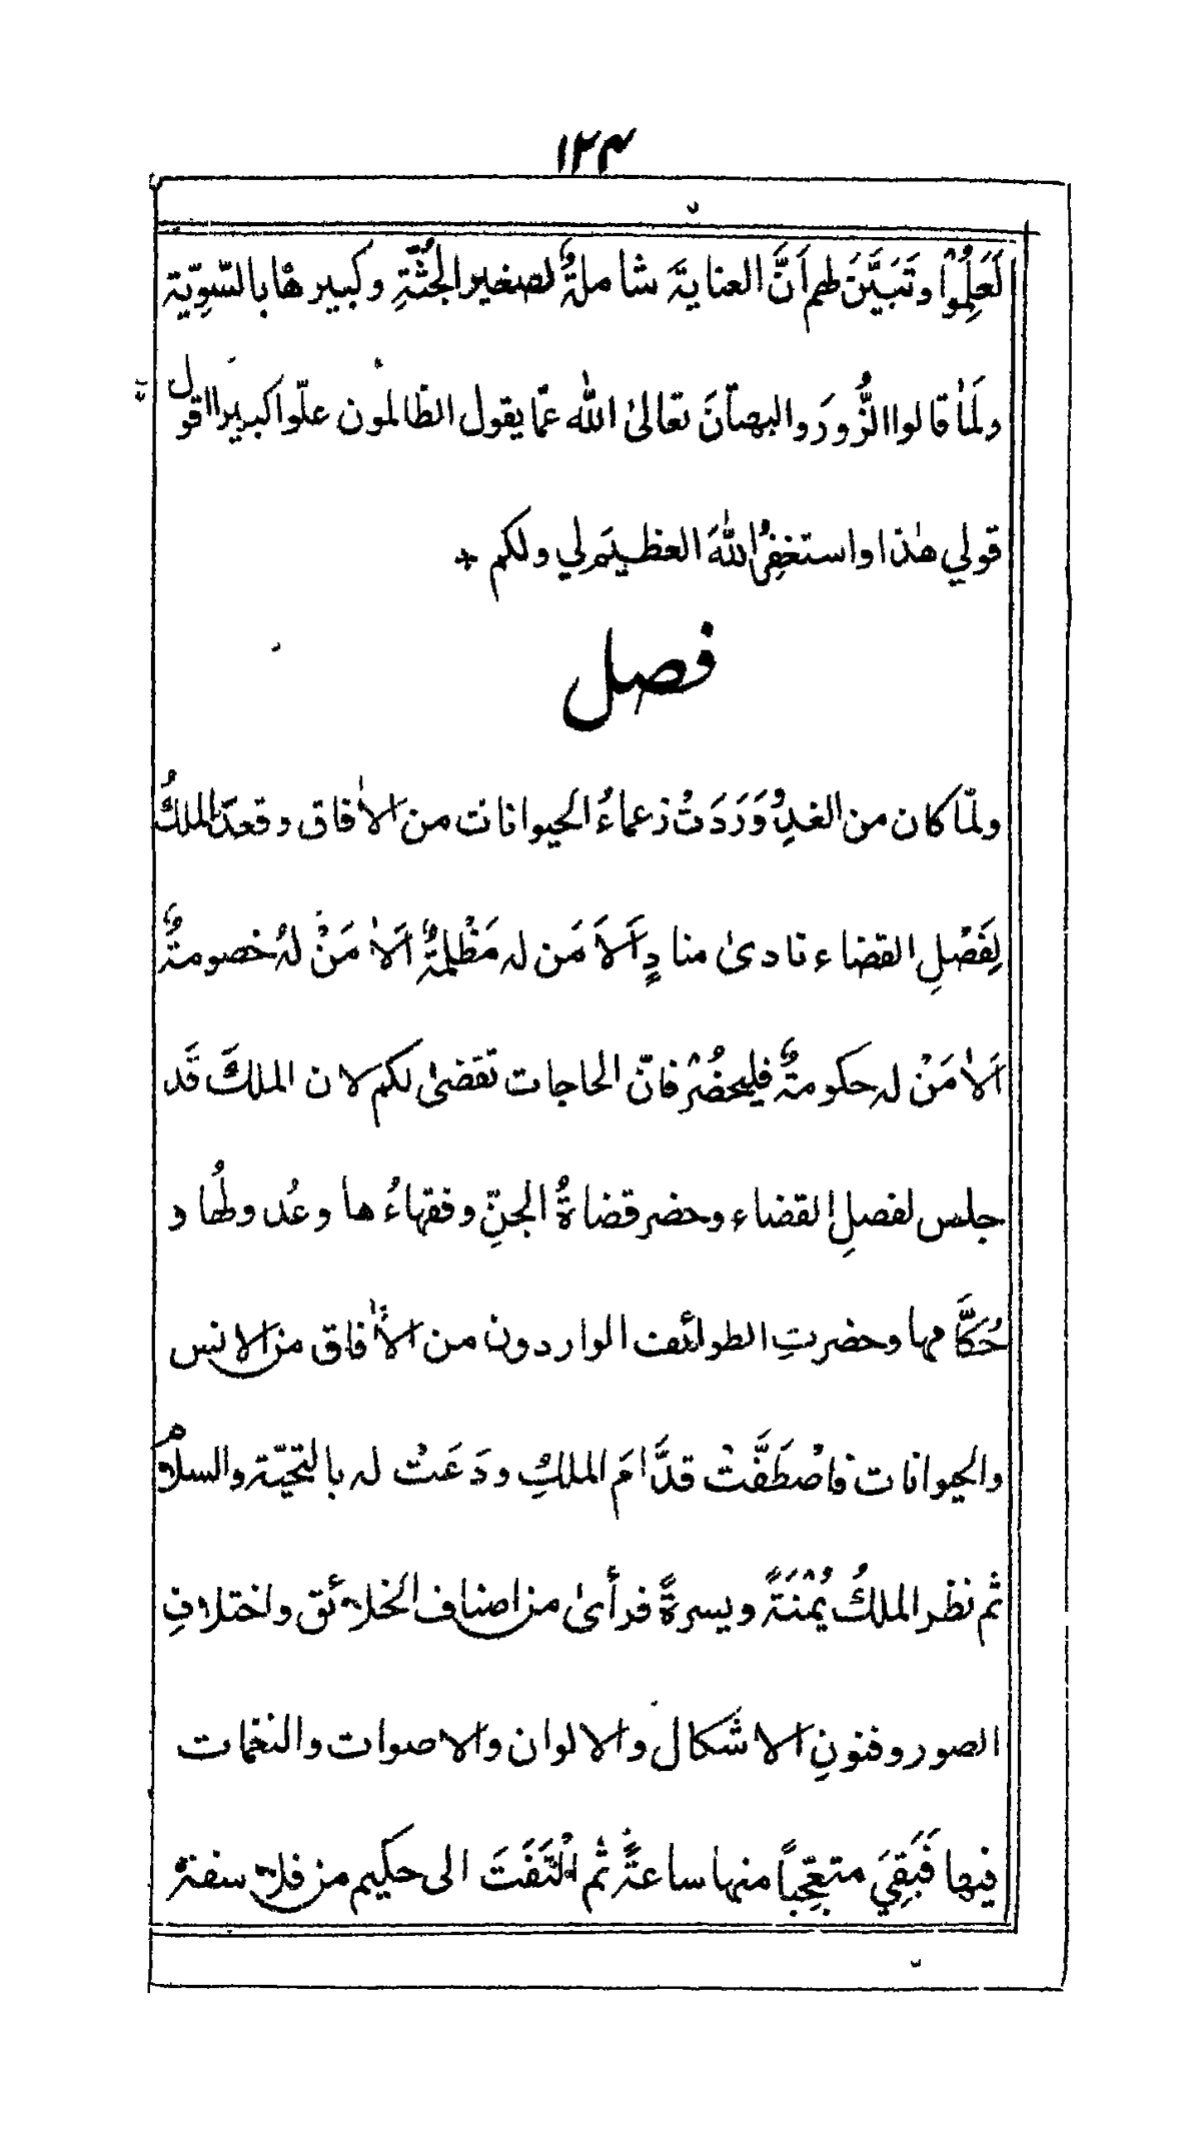 ۱۲۴
لَعَلِمُوْا وتَبَيَّنَ لهم اَنَّ العنايةَ شاملةٌ لصغيرِ الجُثَّةِ وكبيرِها بالسَّوِيّة
ولَمَا قالوا الزُّورَ والبهتَانَ تعالىٰ الله عمّا يقول الظالمون علّوا كبيرا اقول
قولي هٰذا واستغفِرُ اللهَ العظيمَ لي ولكم +
فصل
ولمّا كان من الغدِ وَرَدَتْ زعماءُ الحيوانات من الاٰفاق وقعدَ الملكُ
لِفَصْلِ القضاء نادىٰ منادٍ اَلاَ مَن له مَظْلِمَةٌ اَلاٰ مَنْ لهُ خصومةٌ
اَلاٰ مَنْ له حكومةٌ فليحضُرْ فانّ الحاجات تقضىٰ لكم لان الملكَ قَد
جلس لفصلِ القضاء وحضر قضاةُ الجنِّ وفقهاءُها وعُدولُها و
حُكَّامها وحضرتِ الطوائف الواردون من الاٰفاق من الانس
والحيوانات فاصْطَفَّتْ قدَّامَ الملكِ ودَعَتْ له بالتحيّة والسلامِ
ثم نظر الملكُ يُمْنَةً ويسرةً فرأىٰ من اصناف الخلائق واختلافِ
الصور وفنونِ الاشكال والالوان والاصوات والنغمات
فيها فَبَقِيَ متعجِّباً منها ساعةً ثم الْتَفَتَ الى حكيم من فلاسفة